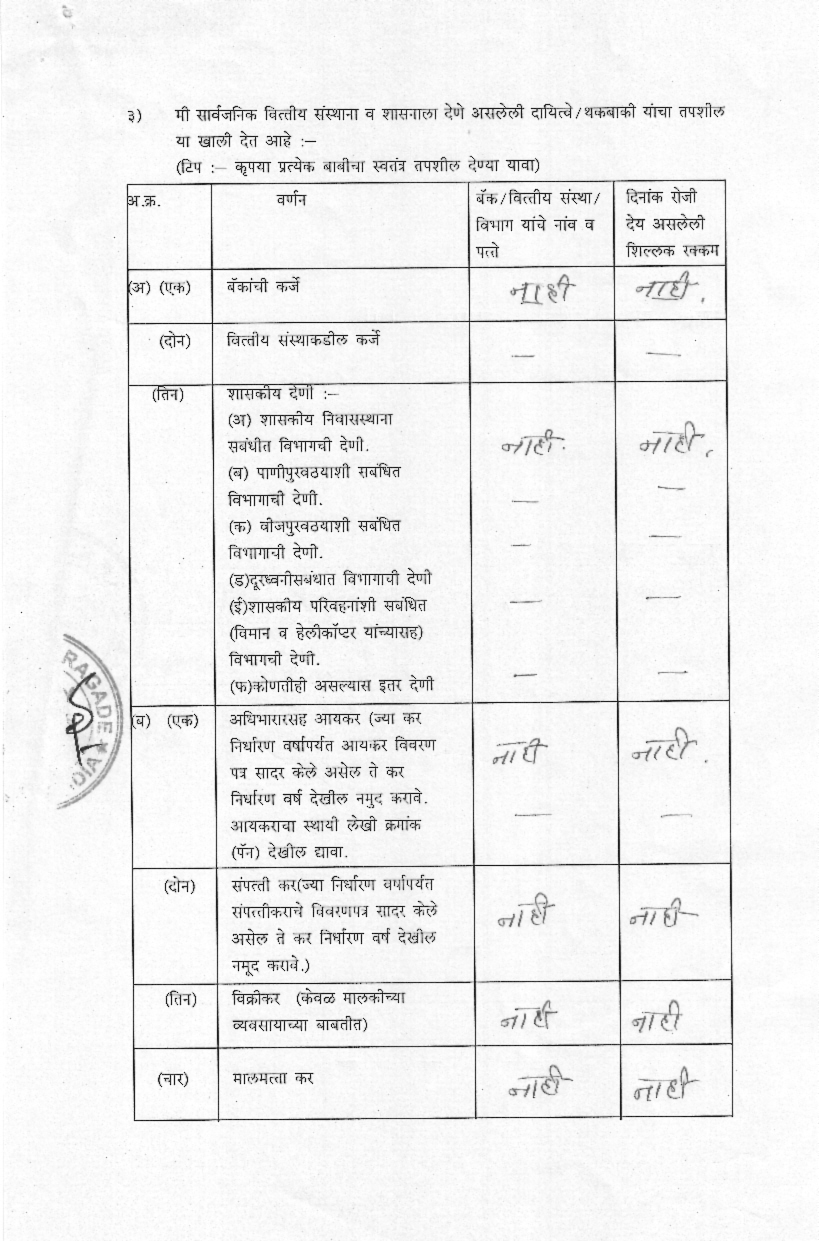 ३) मी सार्वजनिक वित्तीय संस्थाना व शासनाला देणे असलेली दायित्वे/थकबाकी यांचा तपशील
या खाली देत आहे :–
(टिप :– कृपया प्रत्येक बाबीचा स्वतंत्र तपशील देण्या यावा)
अ.क्र. वर्णन बॅक/वित्तीय संस्था/ दिनांक रोजी
विभाग यांचे नांव व देय असलेली
पत्ते शिल्लक रक्कम
(अ) (एक) बॅकांची कर्जे नाही नाही.
(दोन) वित्तीय संस्थाकडील कर्जे — —
(तिन) शासकीय देणी :–
(अ) शासकीय निवासस्थाना
सबंधीत विभागची देणी. नाही. नाही.
(ब) पाणीपुरवठयाशी सबंधित
विभागाची देणी. — —
(क) वीजपुरवठयाशी सबंधित
विभागाची देणी. — —
(ड)दूरध्वनीसबंधात विभागाची देणी
(ई)शासकीय परिवहनांशी सबंधित — —
(विमान व हेलीकॉप्टर यांच्यासह)
विभागची देणी.
(फ)कोणतीही असल्यास इतर देणी — —
(ब) (एक) अधिभारारसह आयकर (ज्या कर
निर्धारण वर्षापर्यत आयकर विवरण नाही नाही.
पत्र सादर केले असेल ते कर
निर्धारण वर्ष देखील नमुद करावे.
आयकराचा स्थायी लेखी क्रमांक — —
(पॅन) देखील द्यावा.
(दोन) संपत्ती कर(ज्या निर्धारण वर्षापर्यत
संपत्तीकराचे विवरणपत्र सादर केले नाही नाही
असेल ते कर निर्धारण वर्ष देखील
नमूद करावे.)
(तिन) विक्रीकर (केवळ मालकीच्या
व्यवसायाच्या बाबतीत) नाही नाही
(चार) मालमत्वा कर नाही नाही
RAGADE